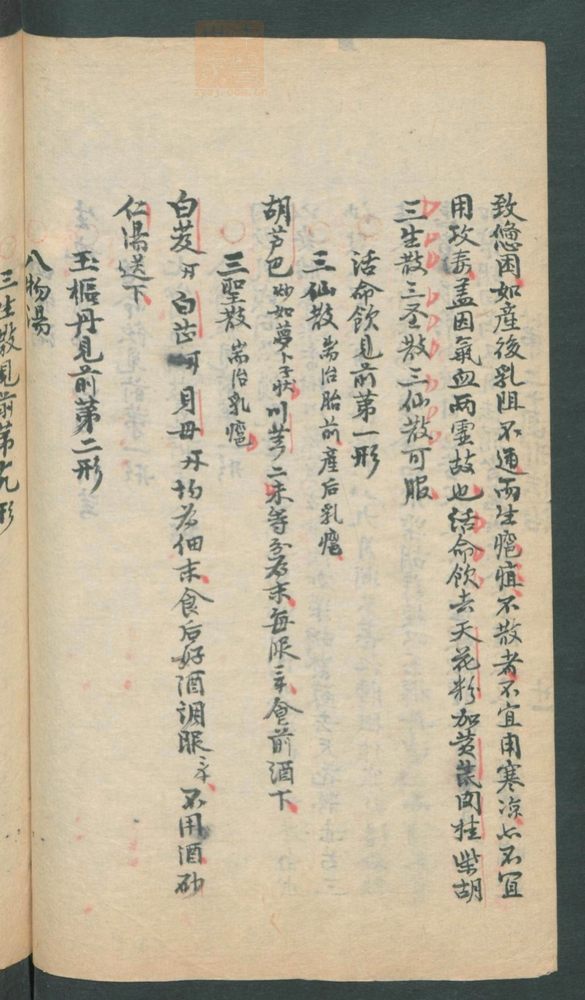 致倦因如產後乳阻不通而生疽不散者不宜用寒凉亦不宜
用攻毒盖因氣血两虛故也活命飲去天花粉加黄茋肉桂柴胡
三生散三圣散三仙散可服
活命飲見前苐一形
三仙散耑治胎前產后乳
胡芦巴炒如蘿卜子狀川芎二末等分為末每服三食前酒下
三聖散耑治乳
白芨白芷貝母均為細末食后好酒調服三不用酒砂
仁湯送下
玉樞丹見前苐二形
八物湯
三生散見前苐九形